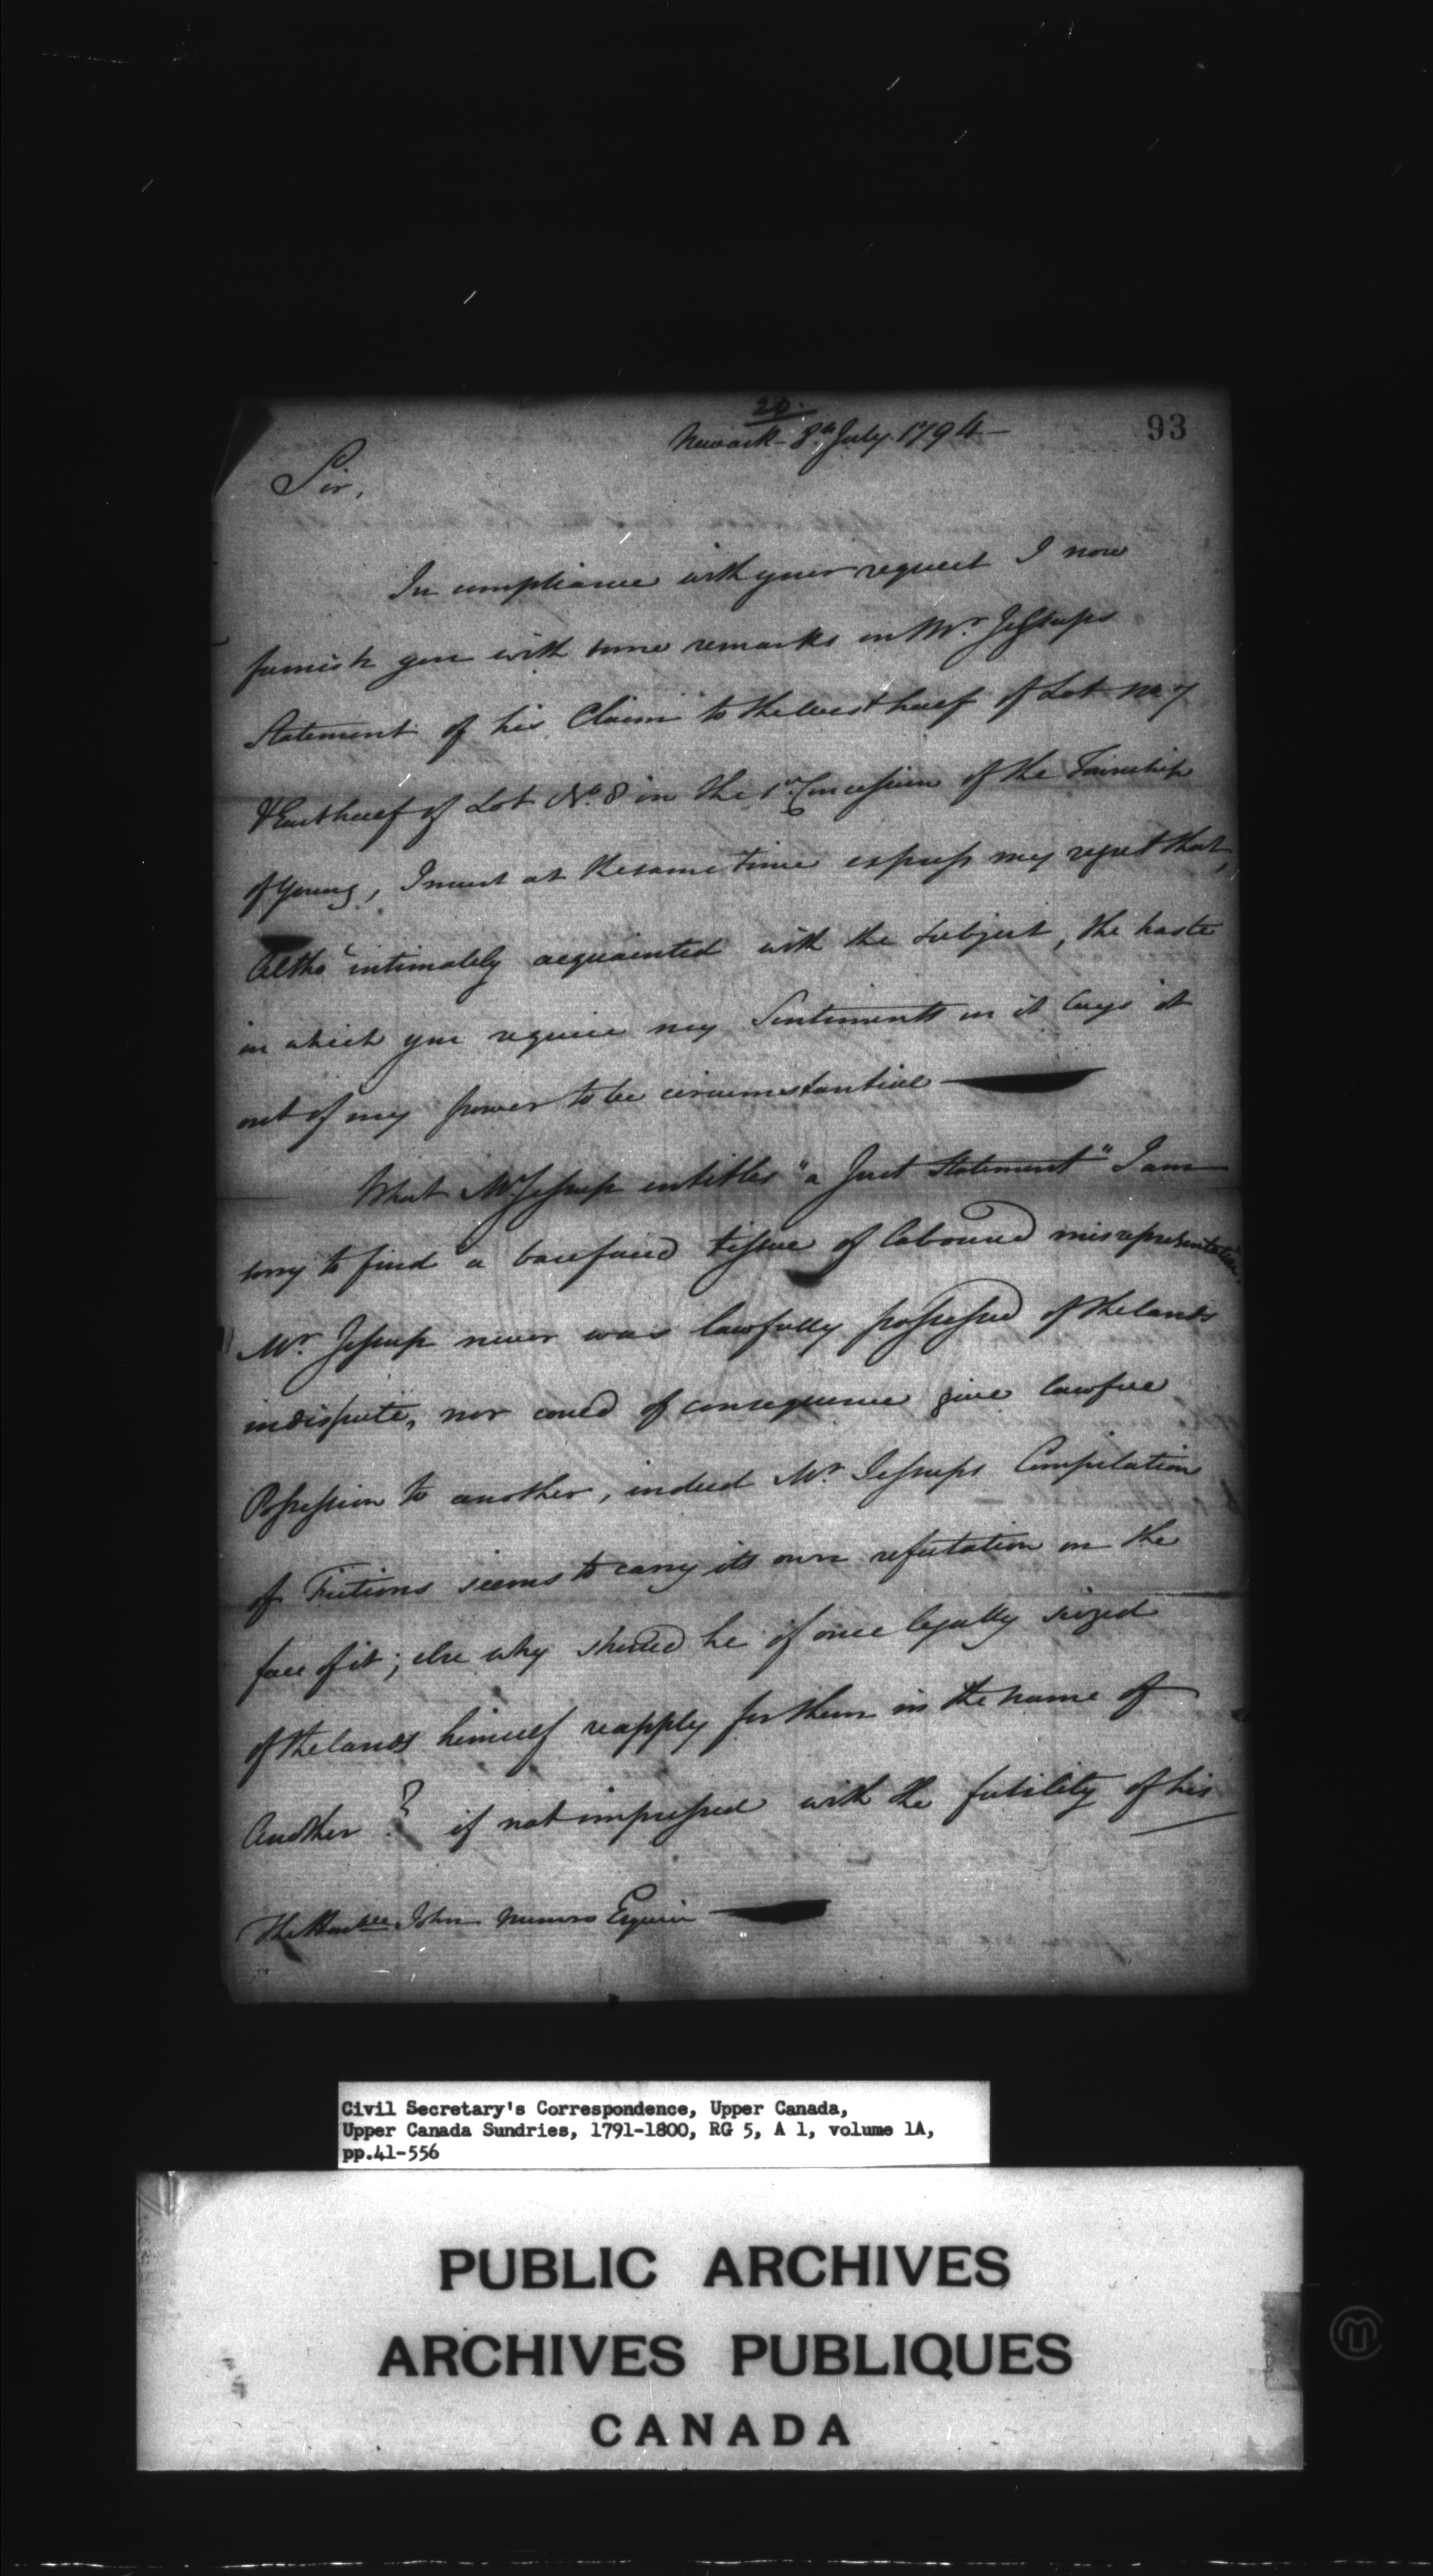 20.
93
Newark - 8th July. 1794 -
Sir,
In compliance with your request I now
furnish you with some remarks on Mr. Jessups
Statement of his Claim to the west half of Lot No 7
& East half of Lot No. 8 in the 1st Concession of the Township
of Young, I must at the same time express my regret that,
Altho' intimately acquainted with the subject, the haste
in which you require my Sentiments on it lays it
out of my power to be circumstantial
What Mr. Jessup entitles "a Just Statement" I am
sorry to find a barefaced tissue of laboured misrepresentation.
Mr. Jessup never was lawfully possessed of the lands
in dispute, nor could of consequence give lawful
Possession to another, indeed Mr. Jessups Compilation
of Fictions seems to carry its own refutation on the
face of it; else why should he if once legally seized
of the lands himself reapply for them in the name of
Another? if not impressed with the futility of his
The Honble John Munro Esquire
Civil Secretary's Correspondence, Upper Canada,
Upper Canada Sundries, 1791-1800, RG 5, A 1, volume 1A,
pp.41-556
PUBLIC ARCHIVES
ARCHIVES PUBLIQUES
CANADA